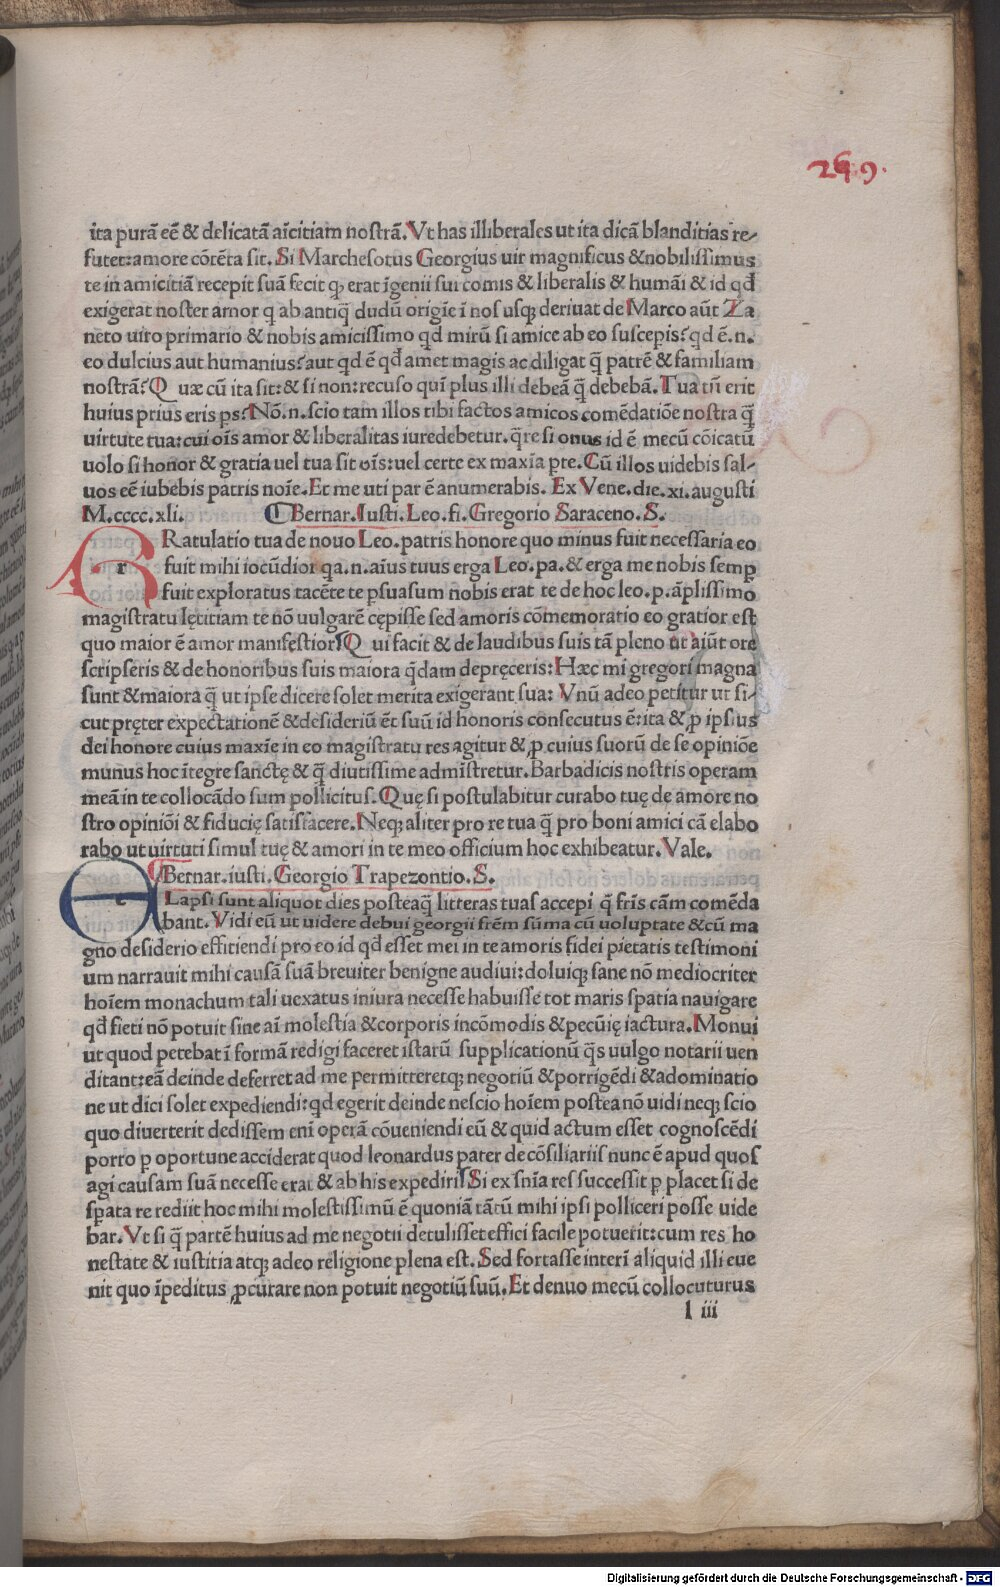 269.
ita purā eē & delicatā aīcitiam noſtrā. Vt has illiberales ut ita dicā blanditias re/
futet: amore cōtēta ſit. Si Marcheſotus Georgius uir magnificus & nobiliſſimus
te in amicitiā recepit ſuā fecit qꝫ erat īgenii ſui comis & liberalis & humāi & id qď
exigerat noſter amor q ab antiq̄ dudū origīe ī noſ uſqꝫ deriuat de Marco aūt Za
neto uiro primario & nobis amiciſſimo qď mirū ſi amice ab eo ſuſcepiſ? qď ē .n.
eo dulcius aut humanius? aut qď ē qď amet magis ac diligat q̄ patrē & familiam
noſtrā? Q uæ cū ita ſit: & ſi non: recuſo quī plus illi debeā q̄ debebā. Tua tn̄ erit
huius prius eris pſ? Nō .n. ſcio tam illos tibi factos amicos comēdatiōe noſtra q̄
uirtute tua: cui oīs amor & liberalitas iuredebetur. q̄re ſi onus id ē mecū cōicatū
uolo ſi honor & gratia uel tua ſit oīs: uel certe ex maxīa pte. Cū illos uidebis ſal/
uos eē iubebis patris noīe. Et me uti par ē anumerabis. Ex Vene. die. xi. auguſti
M.cccc.xli. ⸿Bernar. Iuſti. Leo. fi. Gregorio Saraceno. S.
GRatulatio tua de nouo Leo. patris honore quo minus fuit neceſſaria eo
fuit mihi iocūdior qa .n. aīus tuus erga Leo. pa. & erga me nobis ſemꝑ
fuit exploratus tacēte te ꝑſuaſum nobis erat te de hoc leo. p. āpliſſimo
magiſtratu lętitiam te nō uulgarē cępiſſe ſed amoris cōmemoratio eo gratior eſt
quo maior ē amor manifeſtior. Q ui facit & de laudibus ſuis tā pleno ut aiūt ore
ſcripſeris & de honoribus ſuis maiora q̄dam depręceris: Hæc mi gregori magna
ſunt & maiora q̄ ut ipſe dicere ſolet merita exigerant ſua: Vnū adeo petitur ut ſi/
cut pręter expectationē & deſideriū ēt ſuū id honoris conſecutus ē: ita & ꝓ ipſius
dei honore cuius maxīe in eo magiſtratu res agitur & ꝓ cuius ſuorū de ſe opiniōe
munus hoc ītegre ſanctę & q̄ diutiſſime admīſtretur. Barbadicis noſtris operam
meā in te collocādo ſum pollicitus. Quę ſi poſtulabitur curabo tuę de amore no
ſtro opiniōi & fiducię ſatiſfacere. Neqꝫ aliter pro re tua q̄ pro boni amici cā elabo
rabo ut uirtuti ſimul tuę & amori in te meo officium hoc exhibeatur. Vale.
⸿Bernar. iuſti. Georgio Trapezontio. S.
ELapſi ſunt aliquot dies poſteaq̄ litteras tuaſ accepi q̄ frīs cām comēda
bant. Vidi eū ut uidere debui georgii frēm ſūma cū uoluptate & cū ma
gno deſiderio effitiendi pro eo id qď eſſet mei in te amoris fidei pietatis teſtimoni
um narrauit mihi cauſā ſuā breuiter benigne audiui: doluiqꝫ ſane nō mediocriter
hoīem monachum tali uexatus iniura neceſſe habuiſſe tot maris ſpatia nauigare
qď fieti nō potuit ſine aī moleſtia & corporis incōmodis & pecūię iactura. Monui
ut quod petebat ī formā redigi faceret iſtarū ſupplicationū q̄s uulgo notarii uen
ditant: eā deinde deferret ad me permitteretqꝫ negotiū & porrigēdi & adominatio
ne ut dici ſolet expediendi: qď egerit deinde neſcio hoīem poſtea nō uidi neqꝫ ſcio
quo diuerterit dediſſem enī operā cōueniendi eū & quid actum eſſet cognoſcēdi
porro ꝑ oportune acciderat quod leonardus pater de cōſiliariiſ nunc ē apud quoſ
agi cauſam ſuā neceſſe erat & ab his expediri. Si ex ſnīa reſ ſucceſſit ꝑ placet ſi de
ſꝑata re rediit hoc mihi moleſtiſſimū ē quoniā tātū mihi ipſi polliceri poſſe uide
bar. Vt ſi q̄ partē huius ad me negotii detuliſſet effici facile potuerit: cum res ho
neſtate & iuſtitia atqꝫ adeo religione plena eſt. Sed fortaſſe interī aliquid illi eue
nit quo īpeditus ꝓcurare non potuit negotiū ſuū. Et denuo mecū collocuturus
l iii
Digitalisierung gefördert durch die Deutsche Forschungsgemeinschaft - DFG